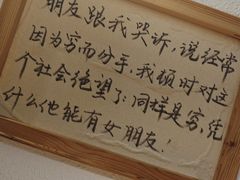 朋友跟我哭诉，说经常
因为穷而分手，我顿时对这
个社会绝望了：同样是穷，凭
什么他能有女朋友！